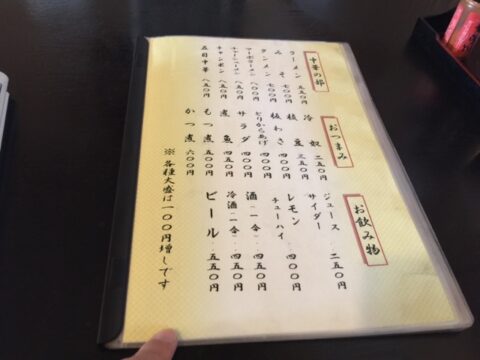 中華の部
ラーメン 五五〇円
みそ 七〇〇円
タンメン 七〇〇円
マーボラーメン 八〇〇円
チャーシューメン 八五〇円
チャンポン 八五〇円
五目中華 八五〇円
おつまみ
冷奴 二五〇円
枝豆 三五〇円
板わさ 四〇〇円
とりからあげ
サラダ 四五〇円
煮魚 四五〇円
もつ煮 五五〇円
かつ煮 六〇〇円
お飲み物
ジュース
サイダー ・二五〇円
レモン
チューハイ 四〇〇円
酒(一合)・四五〇円
冷酒(一合)・四五〇円
ビール ・・五五〇円
※各種大盛は一〇〇円増しです